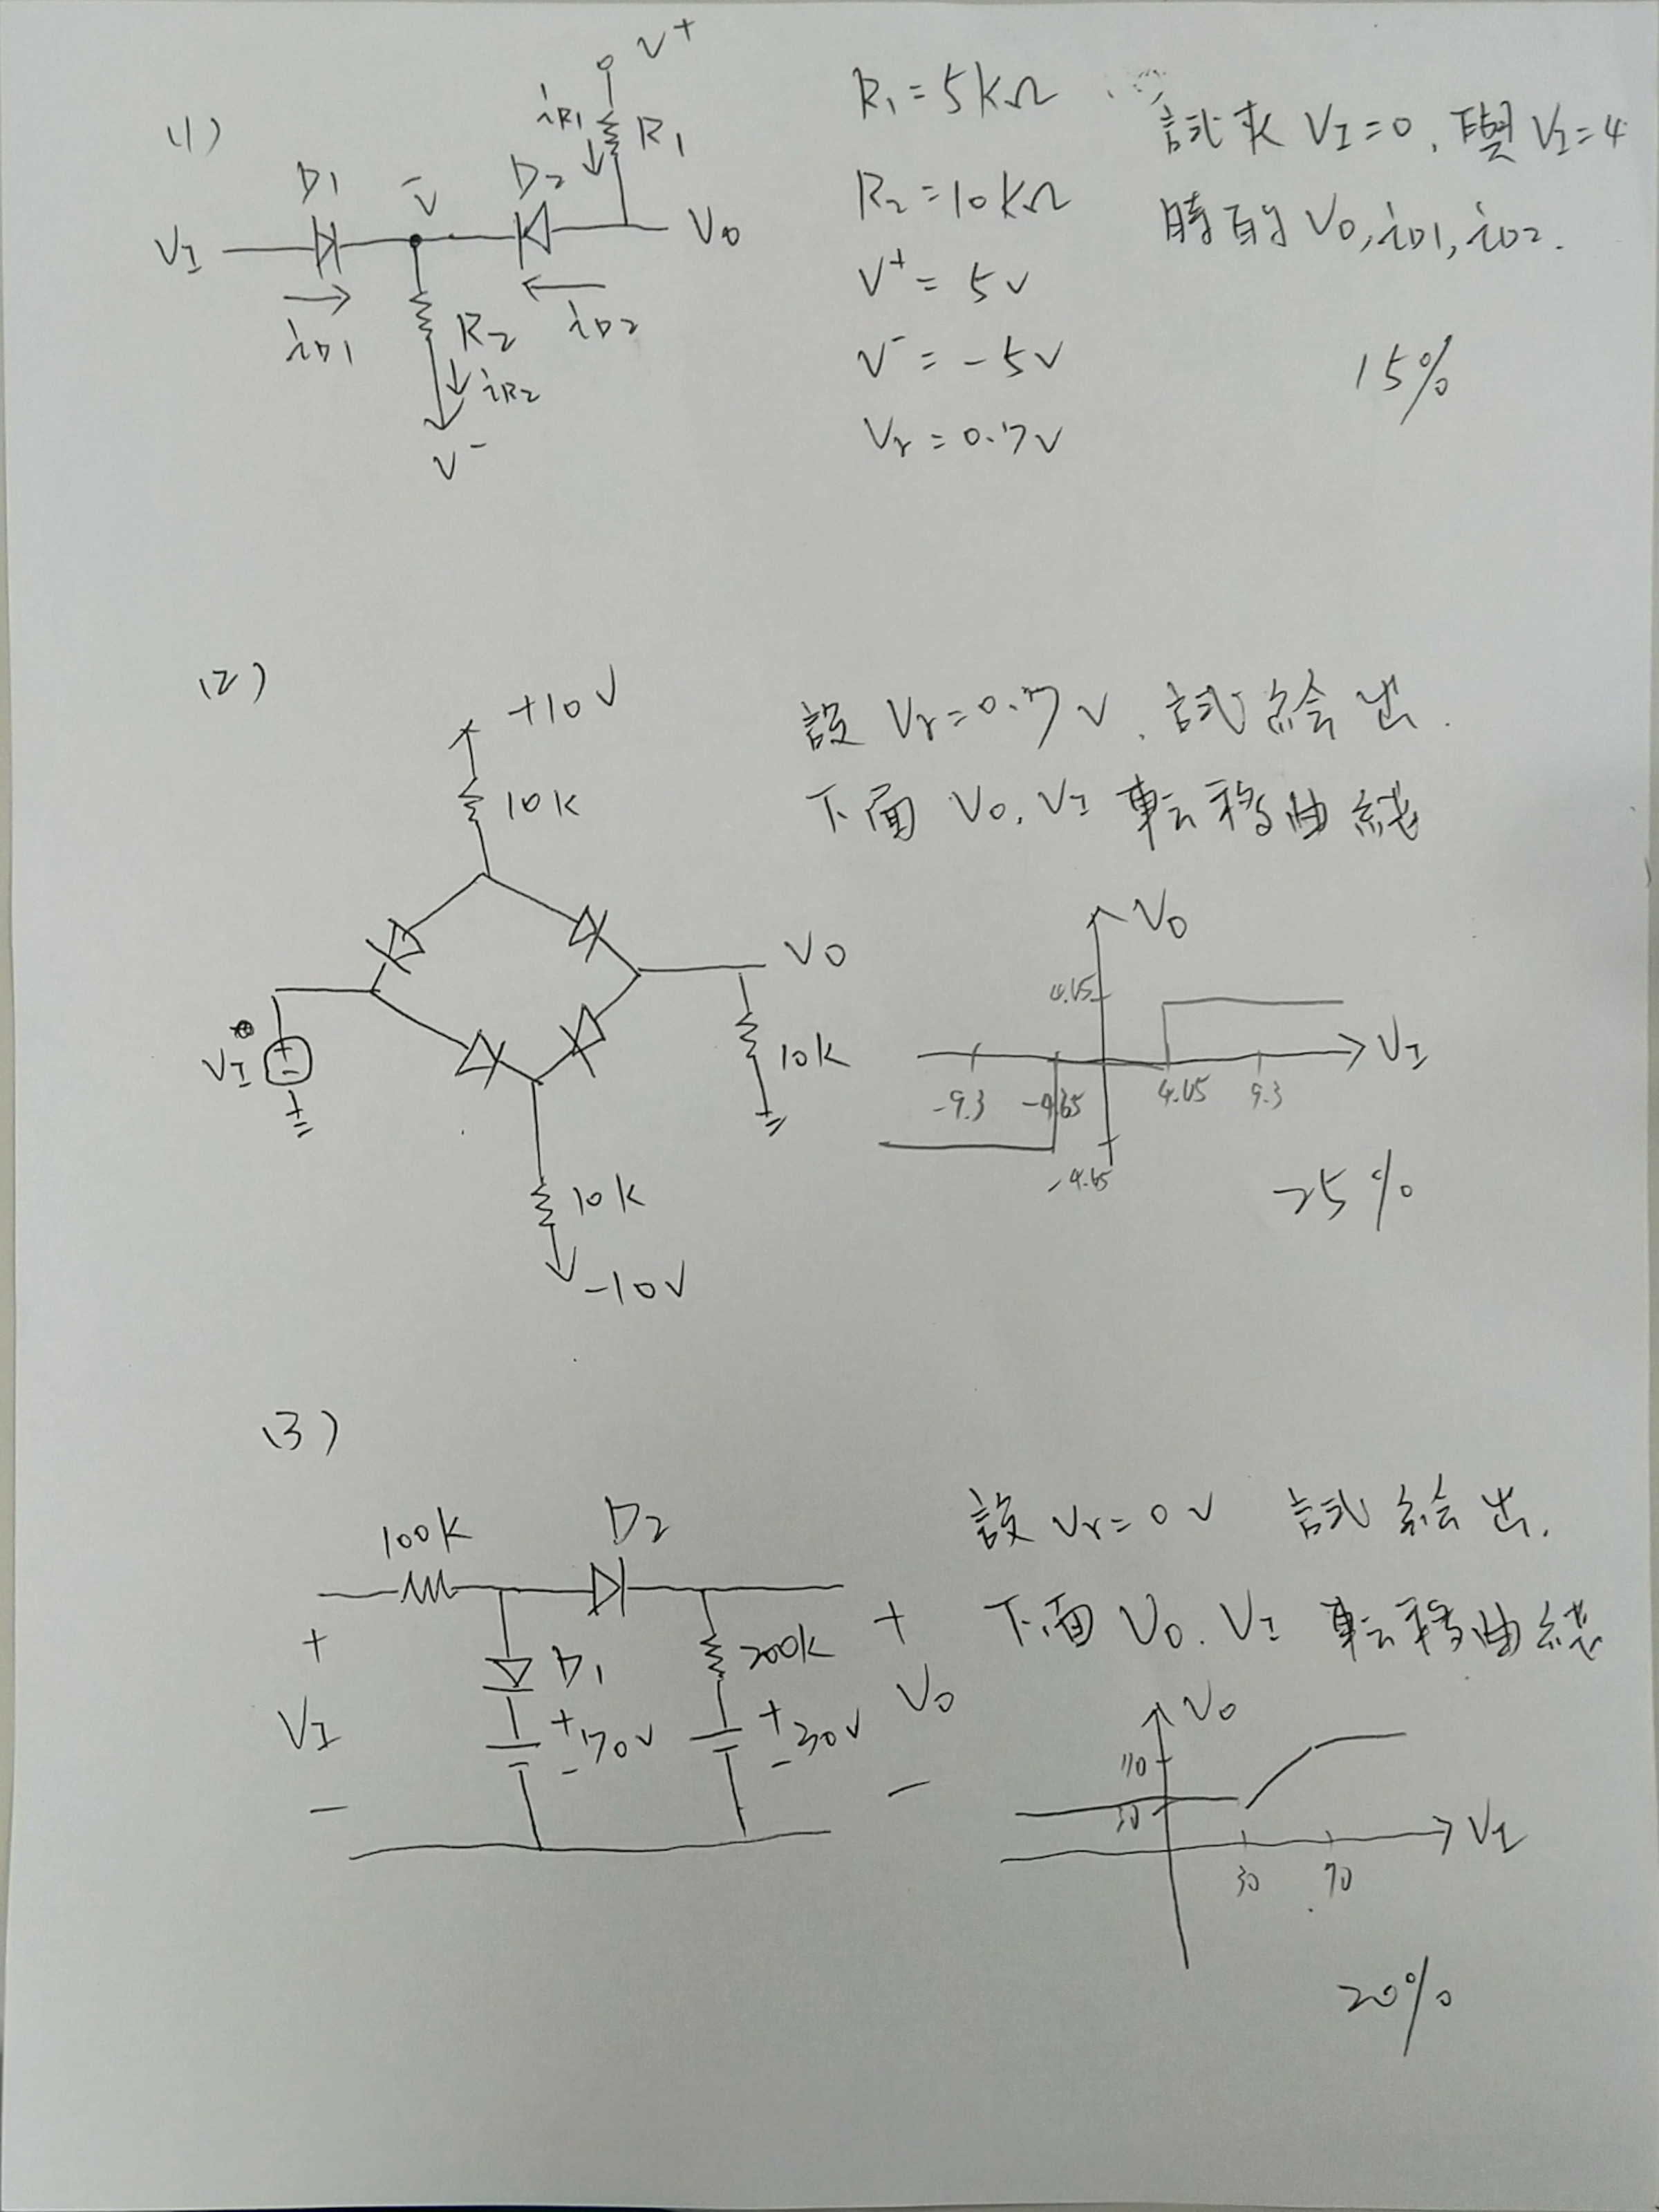 (1)
V+
iR1
R1
D1
V
D2
VI
VO
iD1
R2
iR2
iD2
V-
R1=5kΩ
R2=10kΩ
V+=5V
V-=-5V
Vr=0.7V
試求 VI=0, 與 VI=4
時的 VO, iD1, iD2.
15%
(2)
+10V
10K
VO
10K
VI
+
-
10K
-10V
設 Vr=0.7V, 試絵出.
下面 VO, VI 転移曲綫
VO
4.65
VI
-9.3
-4.65
4.65
9.3
-4.65
25%
(3)
100K
D2
+
VI
-
D1
+
-
70V
200K
+
-
30V
+
VO
-
設 Vr=0V 試絵出.
下面 VO, VI 転移曲綫
VO
70
30
VI
30
70
20%